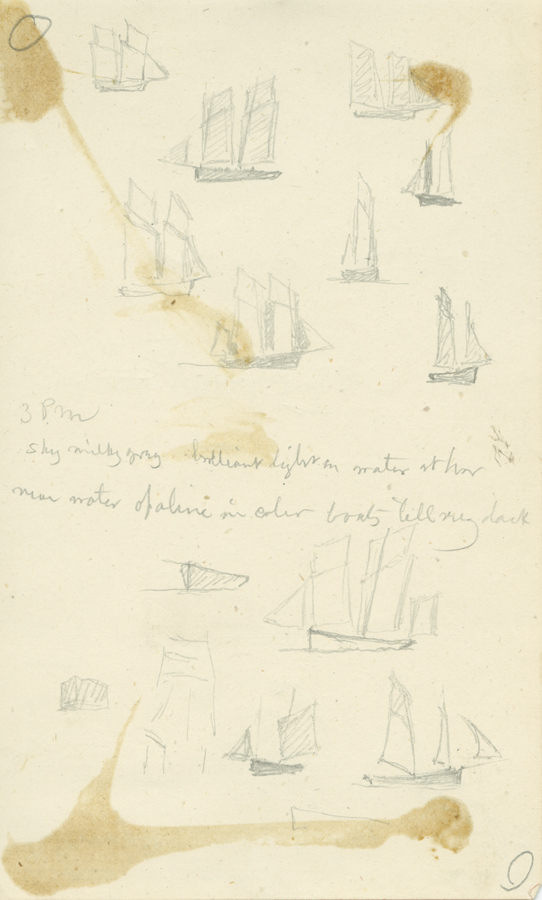 3 PM
sky milky gray brilliant light on water at hor
near water opaline in color boats tell very dark